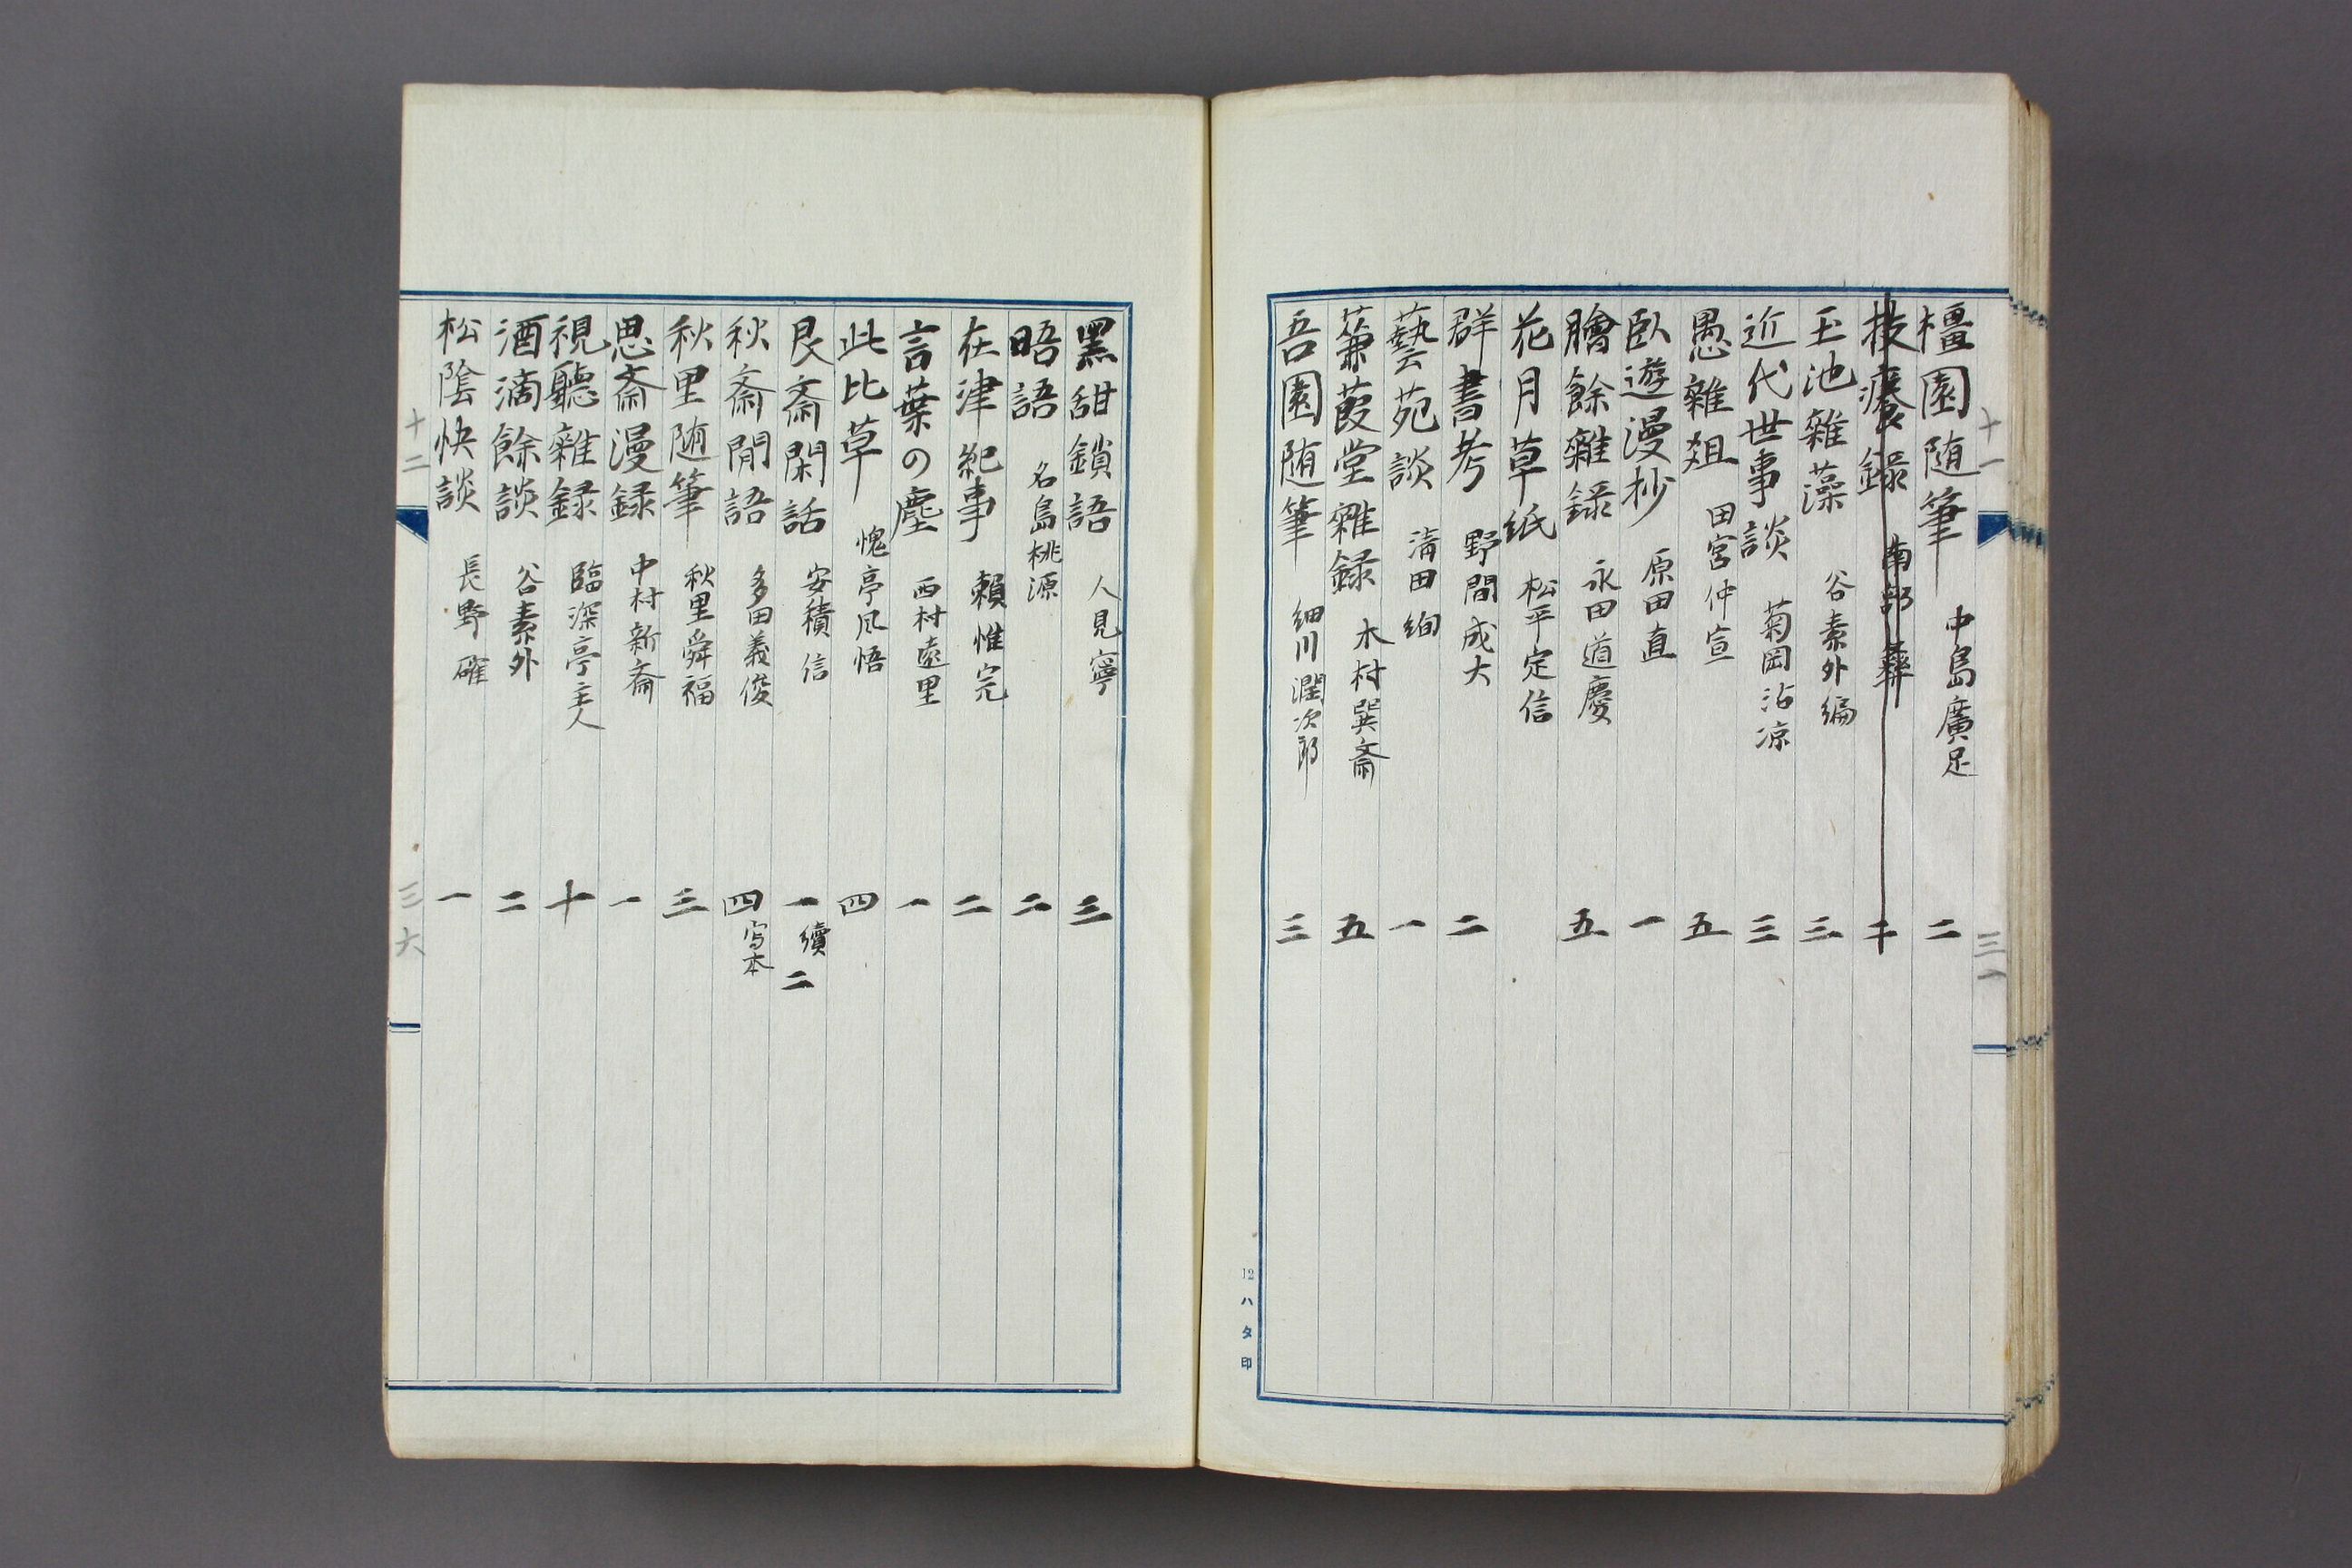 橿園随筆 中島廣足 二
技癢録 南部彜 二
玉池雜藻 谷素外編 三
近代世事談 菊岡沾凉 三
愚雜俎 田宮仲宣 五
臥遊漫抄 原田直 一
膾餘雜録 永田道慶 五
花月草紙 松平定信
群書考 野間成大 二
藝苑談 清田絢 一
蒹葭堂雜録 木村巽斎 五
吾園随筆 細川潤次郎 三
十一
三一
12 ハタ印
黒甜鎖語 人見寧 三
晤語 名島桃源 二
在津紀事 頼惟完 二
言葉の塵 西村遠里 一
此比草 愧亭凡悟 四
艮斎閑話 安積信 一 續二
秋斎閒語 多田義俊 四 写本
秋里随筆 秋里舜福 三
思斎漫録 中村新斎 一
視聽雜録 臨深亭主人 十
酒滴餘談 谷素外 二
松陰快談 長野確 一
十二
三六